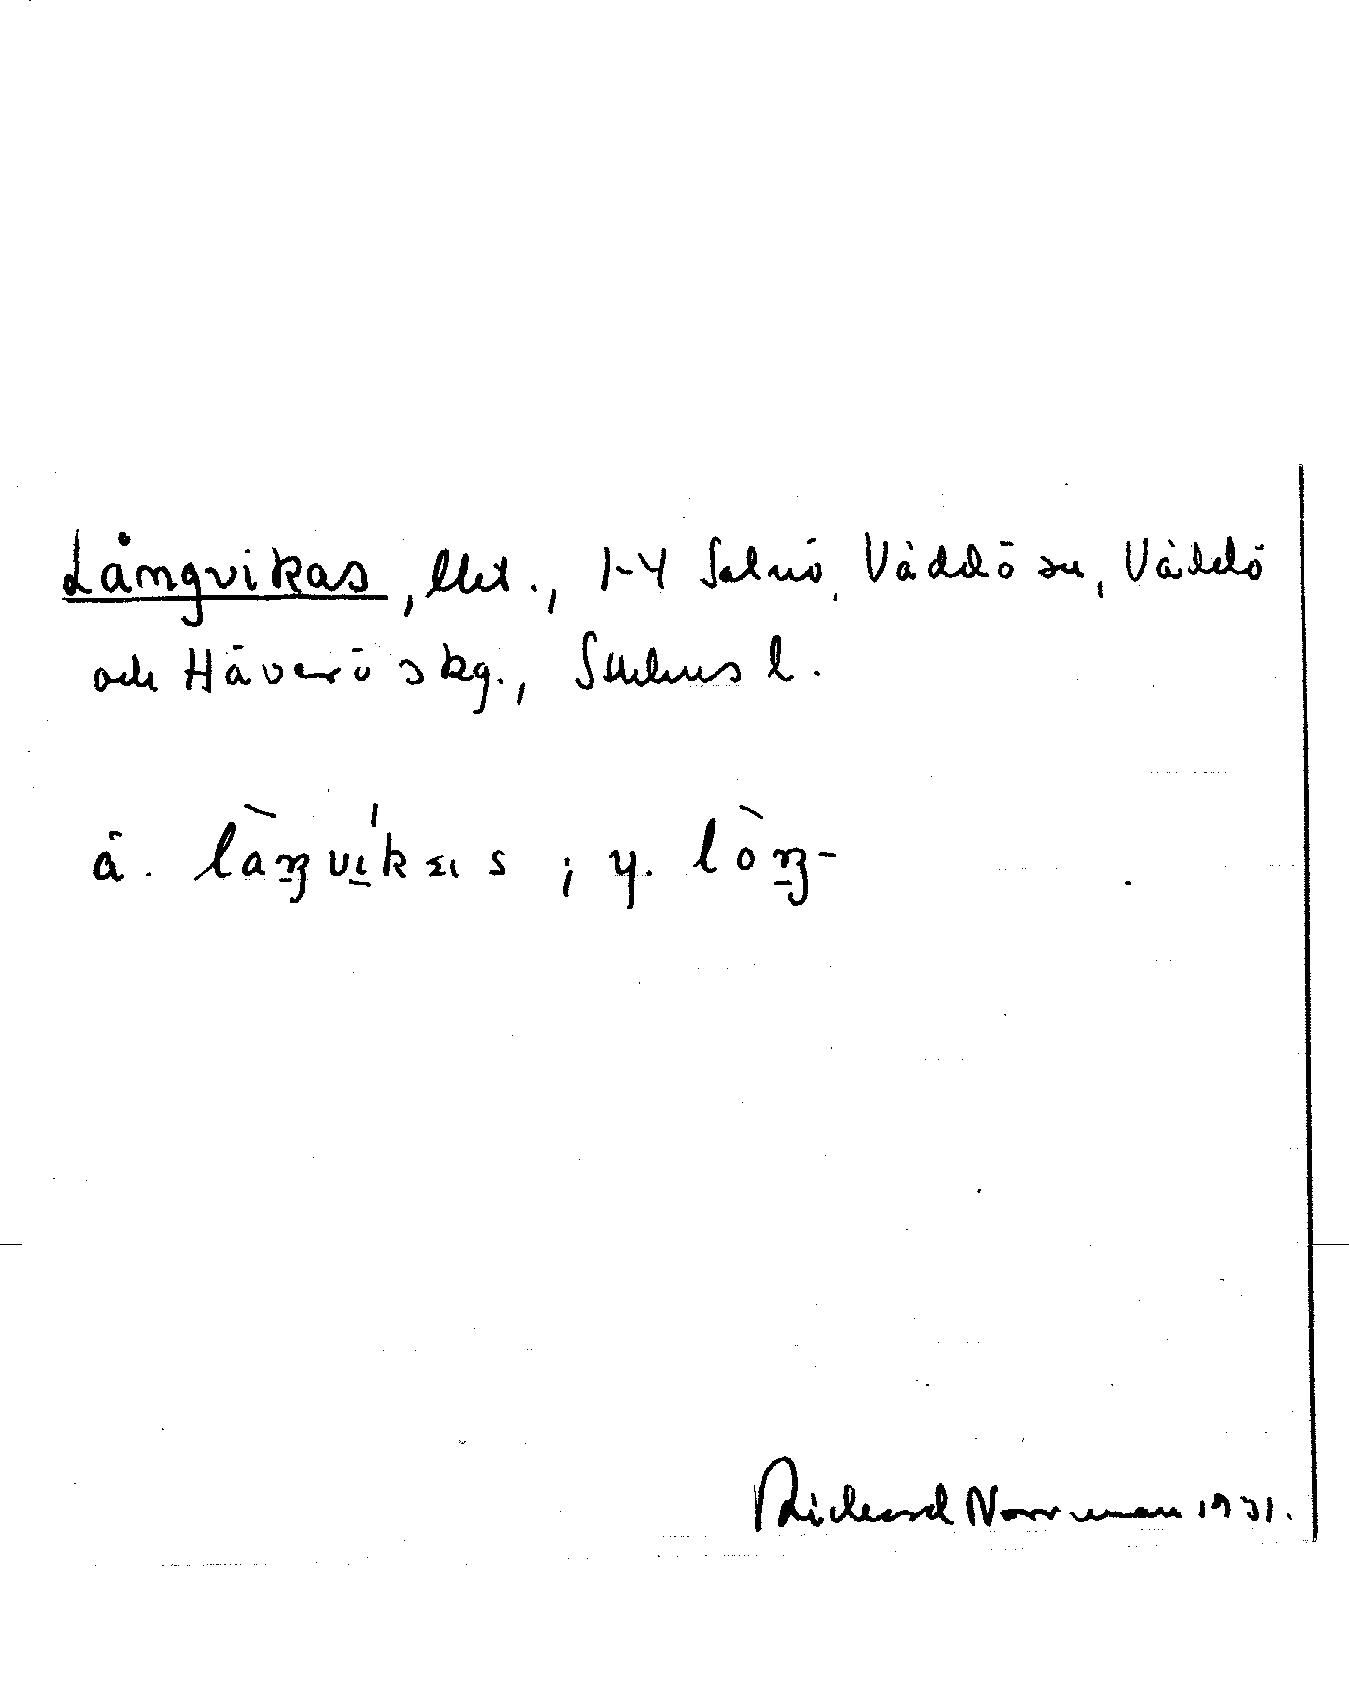 Långvikas, lht., 1-4 Salnö, Väddö sn, Väddö
och Häverö skg., Sthlms l.
ä. làŋvíkas ; y. lòŋ-
Rickard Norrman 1931.